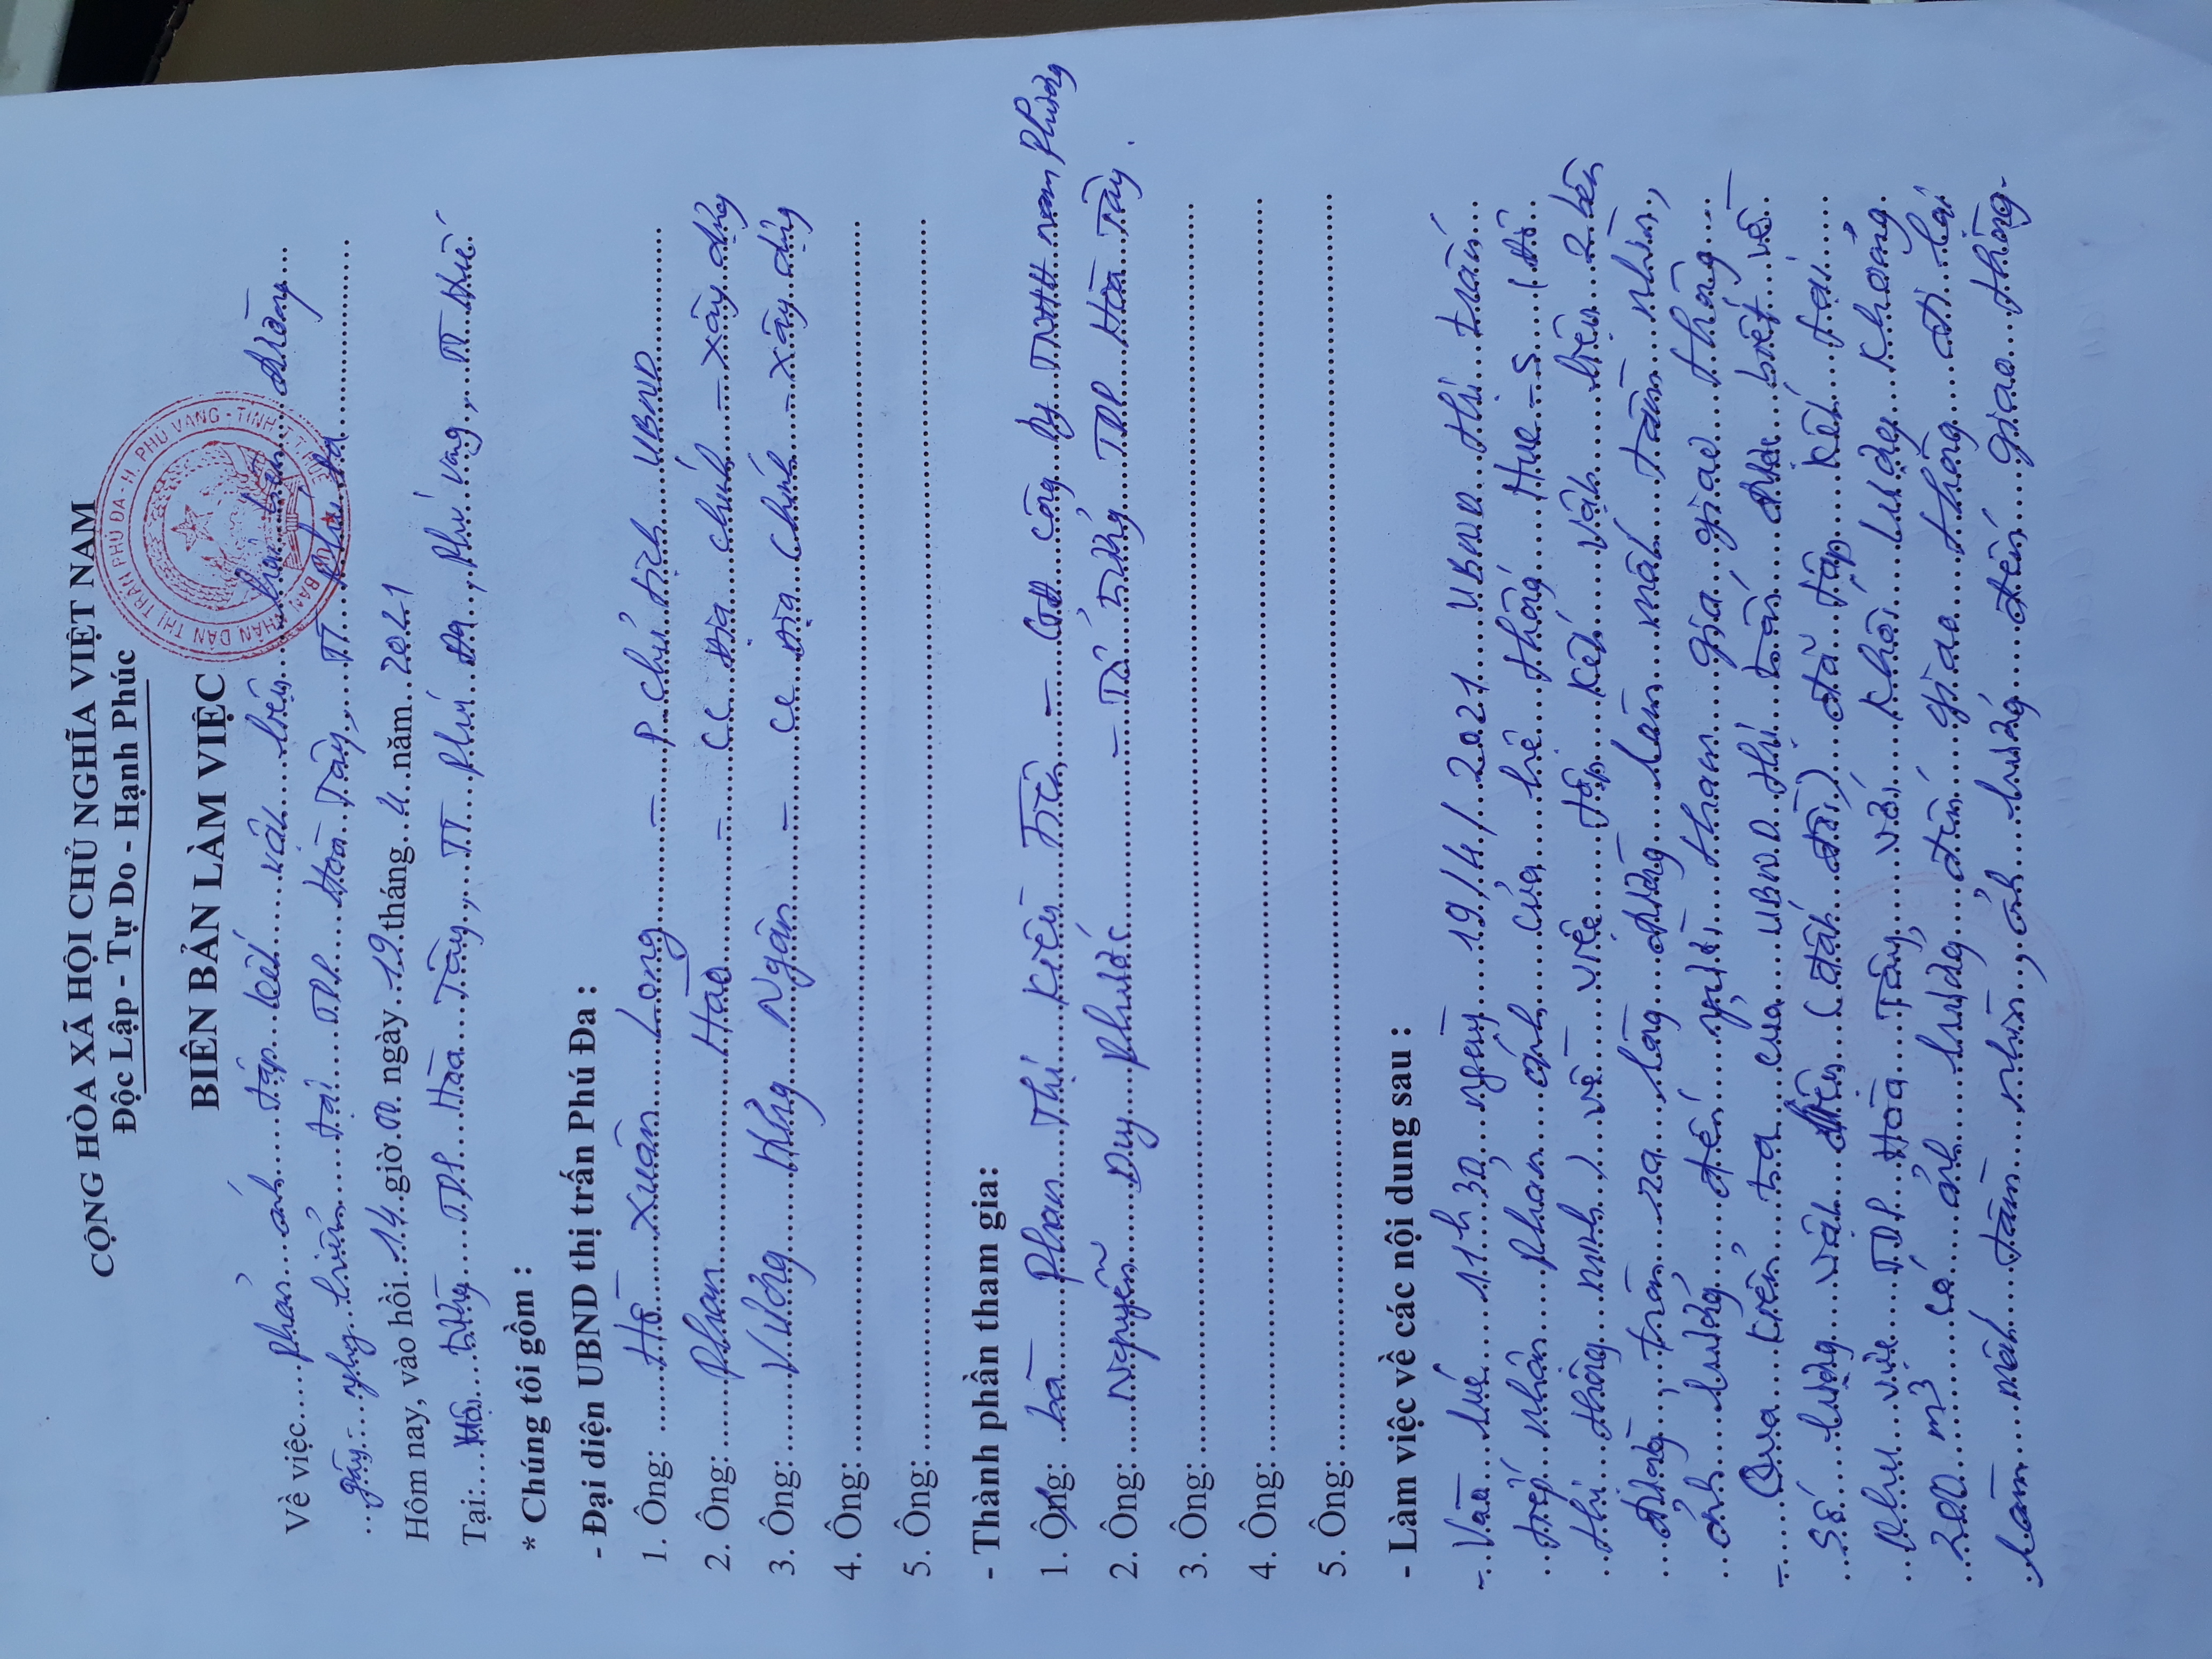 CỘNG HÒA XÃ HỘI CHỦ NGHĨA VIỆT NAM
Độc Lập - Tự Do - Hạnh Phúc
BIÊN BẢN LÀM VIỆC
Về việc.....phản ánh tập kết vật liệu trên đường
gây ... tại TDP Hòa Tây, TT Phú Đa
Hôm nay, vào hồi..14..giờ.00..ngày..19..tháng..4..năm..2021
Tại:... TDP Hòa Tây, TT Phú Đa, Phú Vang, TT Huế
* Chúng tôi gồm :
- Đại diện UBND thị trấn Phú Đa :
1. Ông: Hồ Xuân Long - P. Chủ tịch UBND
2. Ông: Phan Hào - CC Địa chính - xây dựng
3. Ông: Vương Hưng Ngân - CC Địa chính - xây dựng
4. Ông:
5. Ông:
- Thành phần tham gia:
1. Ông: bà Phan Thị Kiều Tiên - GĐ Công ty TNHH Nam Phương
2. Ông: Nguyễn Duy Phước - Tổ trưởng TDP Hòa Tây.
3. Ông:
4. Ông:
5. Ông:
- Làm việc về các nội dung sau :
- Vào lúc 11h30 ngày 19/4/2021 UBND thị trấn
tiếp nhận phản ánh của hệ thống Hue-S (đô
thị thông minh) về việc tập kết vật liệu 2 bên
đường, tràn ra lòng đường làm mất tầm nhìn,
ảnh hưởng đến người tham gia giao thông
- Qua kiểm tra của UBND thị trấn được biết về
số lượng vật liệu (đất đồi) đã tập kết tại
khu vực TDP Hòa Tây với khối lượng khoảng
200 m3 có ảnh hưởng đến giao thông đi lại
làm mất tầm nhìn, ảnh hưởng đến giao thông.
BAN NHÂN DÂN THỊ TRẤN PHÚ ĐA - H. PHÚ VANG - TỈNH